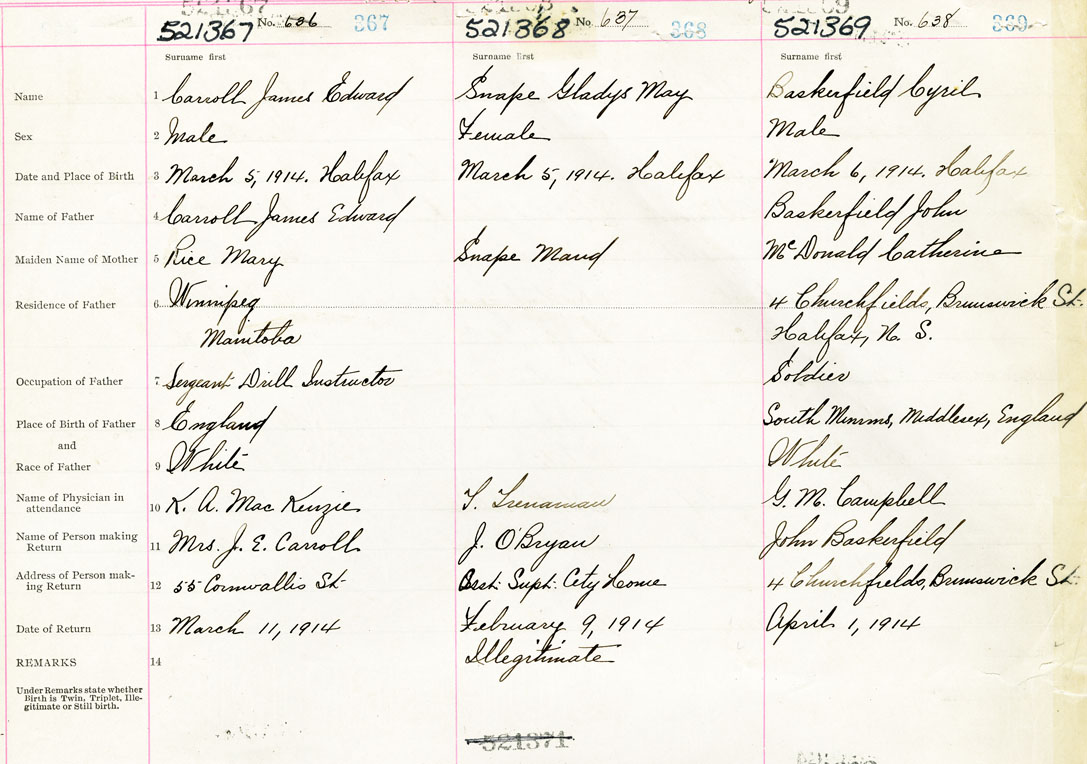 521367 No. 636 367 521368 No. 637 368 521369 No. 638 369
Surname first Surname first Surname first
Name 1 Carroll James Edward Snape Gladys May Baskerfield Cyril
Sex 2 Male Female Male
Date and Place of Birth 3 March 5, 1914. Halifax March 5, 1914. Halifax March 6, 1914, Halifax
Name of Father 4 Carroll James Edward Baskerfield John
Maiden Name of Mother 5 Rice Mary Snape Maud McDonald Catherine
Residence of Father 6 Winnipeg 4 Churchfields, Brunswick St.
Manitoba Halifax, N. S.
Occupation of Father 7 Sergeant Drill Instructor Soldier
Place of Birth of Father 8 England South Mimms, Middlesex, England
and
Race of Father 9 White White
Name of Physician in
attendance 10 K. A. MacKenzie T. Trenaman G. M. Campbell
Name of Person making
Return 11 Mrs. J. E. Carroll J. O'Bryan John Baskerfield
Address of Person mak-
ing Return 12 55 Cornwallis St. Asst. Supt. City Home 4 Churchfields, Brunswick St.
Date of Return 13 March 11, 1914 February 9, 1914 April 1, 1914
REMARKS 14 Illegitimate
Under Remarks state whether
Birth is Twin, Triplet, Ille-
gitimate or Still birth.
521371